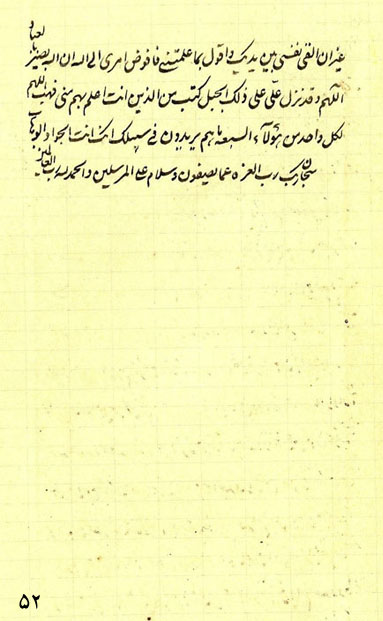 غير ان القى نفسى بين يديك و اقول بما علمتنى فافوض امرى الى اله ان اله بصير بالعباد
اللهم و قد نزل على على ذلك الجبل كتب من الذين انت اعلم بهم منى فهب اللهم
لكل واحد من هؤلاء السبعة ما هم يريدون فى سبيلك انك انت الجواد الوهاب
سبحان ربك رب العزة عما يصفون و سلام على المرسلين و الحمد لله رب العالمين
۵۲